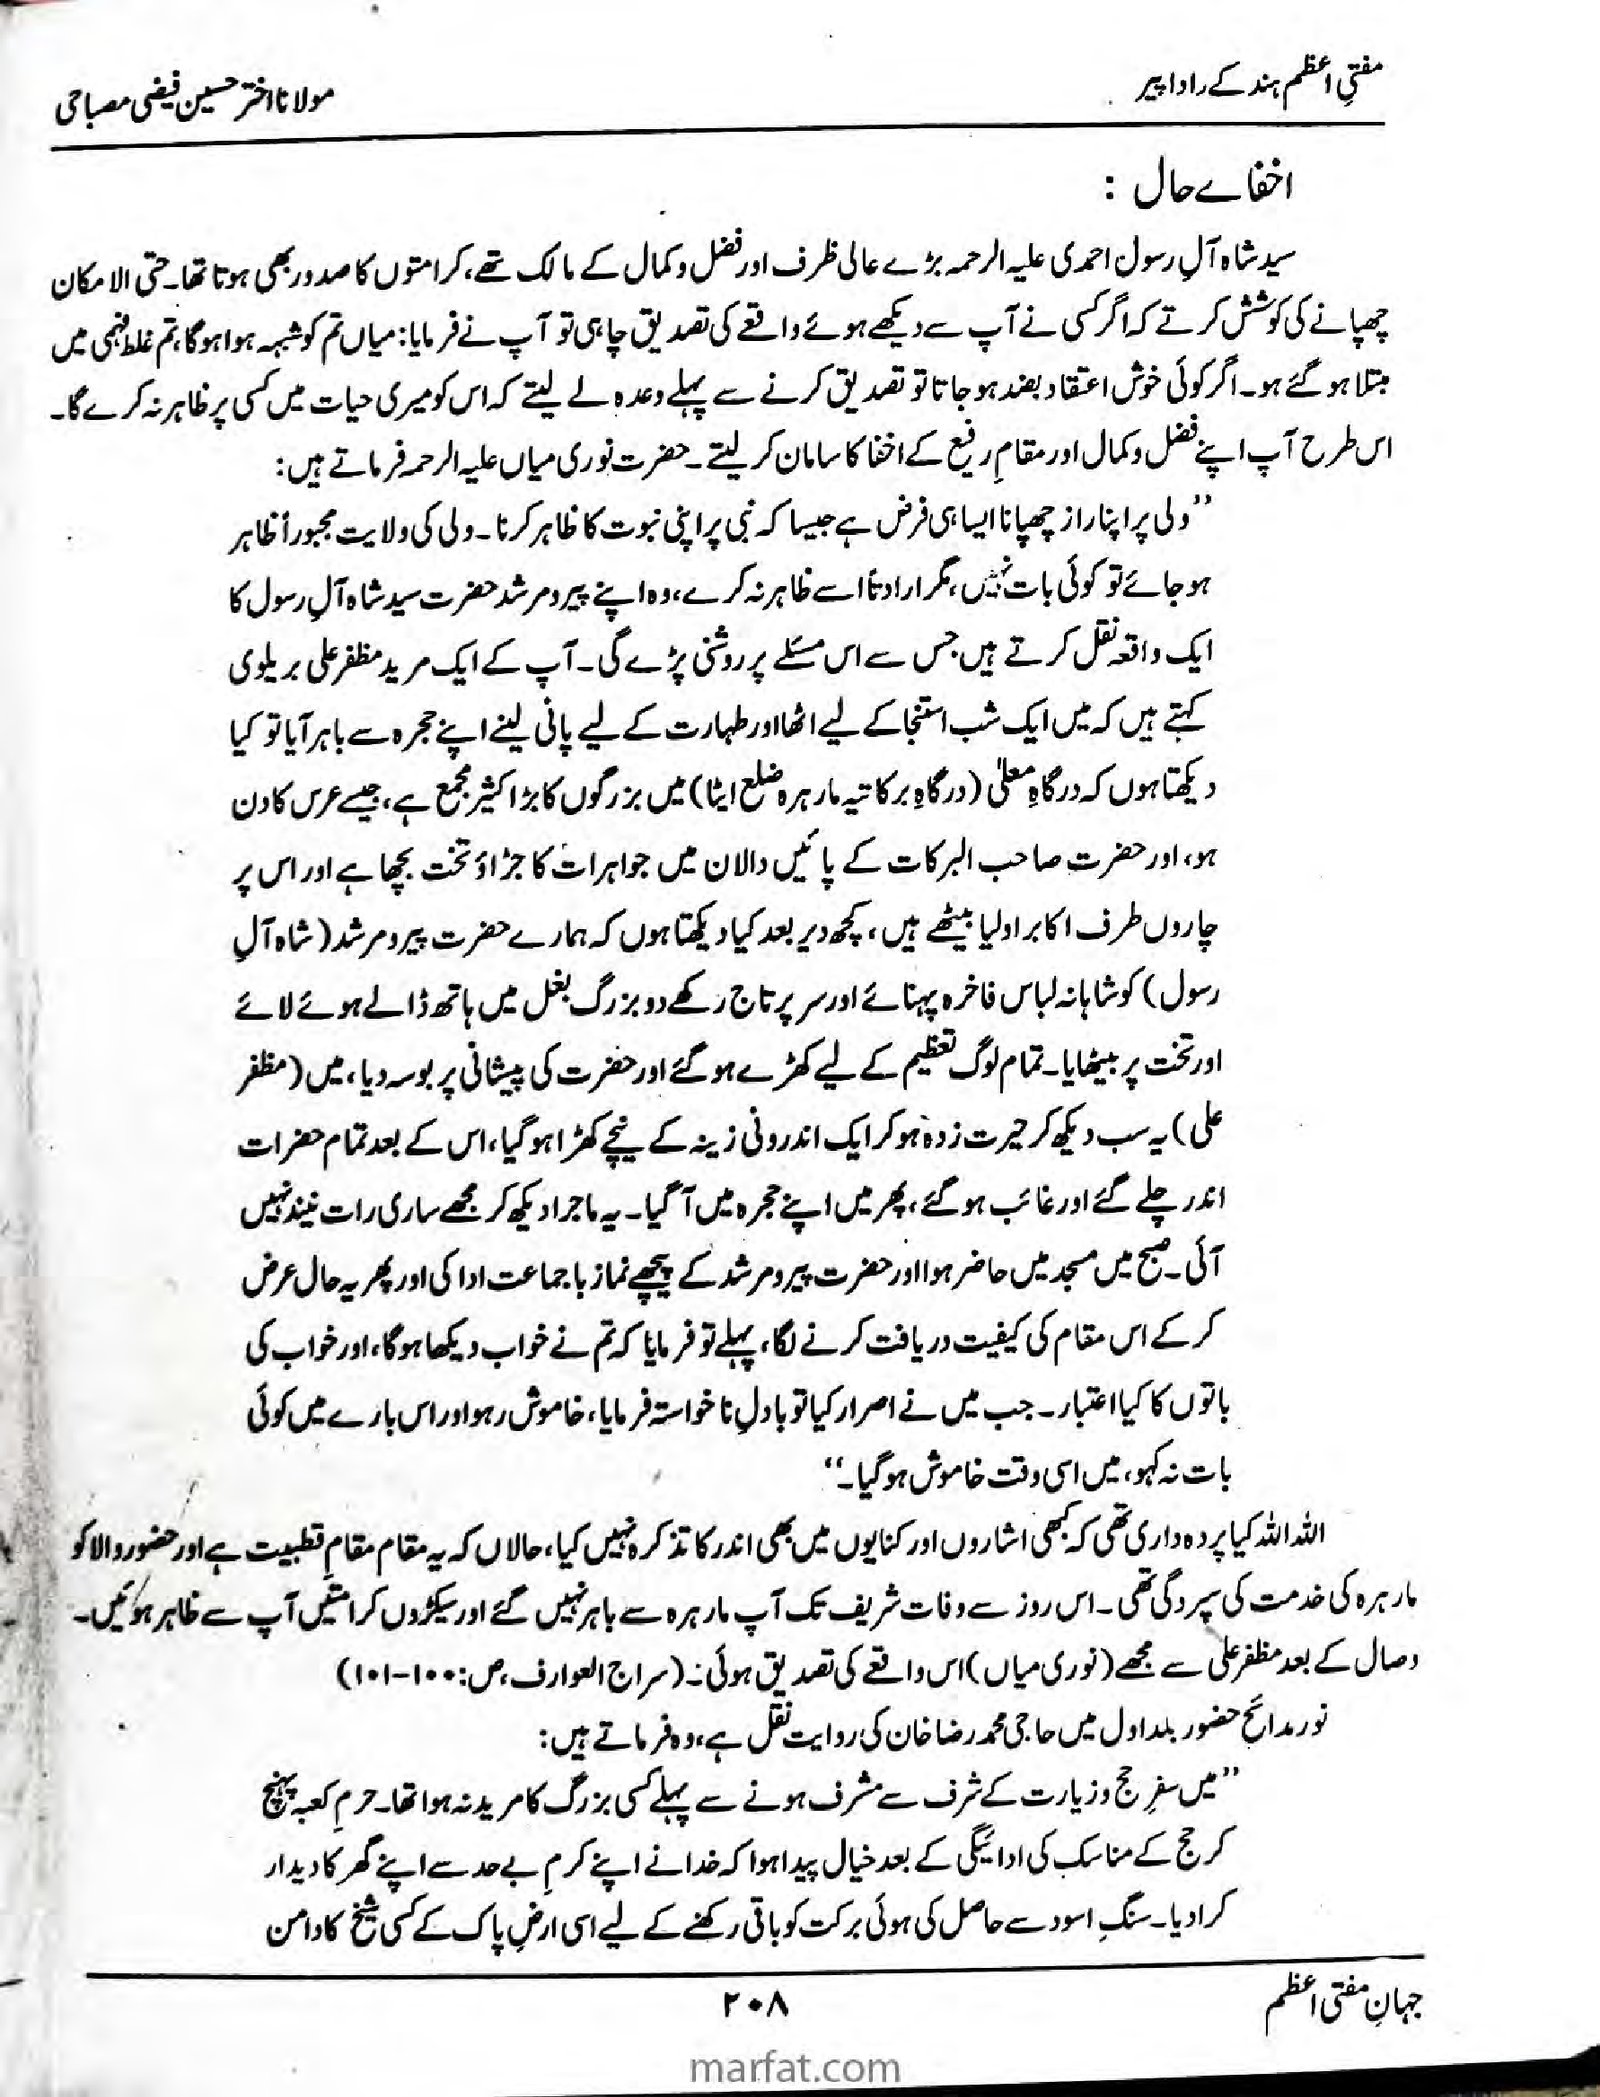 مفتیِ اعظم ہند کے دادا پیر
مولانا اختر حسین فیضی مصباحی
اخفاے حال :
سید شاہ آلِ رسول احمدی علیہ الرحمہ بڑے عالی ظرف اور فضل و کمال کے مالک تھے، کرامتوں کا صدور بھی ہوتا تھا۔ حتی الامکان
چھپانے کی کوشش کرتے کہ اگر کسی نے آپ سے دیکھے ہوئے واقعے کی تصدیق چاہی تو آپ نے فرمایا: میاں تم کو شبہہ ہوا ہوگا، تم غلط فہمی میں
مبتلا ہو گئے ہو۔ اگر کوئی خوش اعتقاد بضد ہو جاتا تو تصدیق کرنے سے پہلے وعدہ لے لیتے کہ اس کو میری حیات میں کسی پر ظاہر نہ کرے گا۔
اس طرح آپ اپنے فضل و کمال اور مقامِ رفیع کے اخفا کا سامان کر لیتے۔ حضرت نوری میاں علیہ الرحمہ فرماتے ہیں:
”ولی پر اپنا راز چھپانا ایسا ہی فرض ہے جیسا کہ نبی پر اپنی نبوت کا ظاہر کرنا۔ ولی کی ولایت مجبوراً ظاہر
ہو جائے تو کوئی بات نہیں، مگر ارادتاً اسے ظاہر نہ کرے، وہ اپنے پیر و مرشد حضرت سید شاہ آلِ رسول کا
ایک واقعہ نقل کرتے ہیں جس سے اس مسئلے پر روشنی پڑے گی۔ آپ کے ایک مرید مظفر علی بریلوی
کہتے ہیں کہ میں ایک شب استنجا کے لیے اٹھا اور طہارت کے لیے پانی لینے اپنے حجرہ سے باہر آیا تو کیا
دیکھتا ہوں کہ درگاہِ معلیٰ (درگاہِ برکاتیہ مارہرہ ضلع ایٹا) میں بزرگوں کا بڑا کثیر مجمع ہے، جیسے عرس کا دن
ہو، اور حضرت صاحب البرکات کے پائیں دالان میں جواہرات کا جڑاؤ تخت بچھا ہے اور اس پر
چاروں طرف اکابر اولیا بیٹھے ہیں، کچھ دیر بعد کیا دیکھتا ہوں کہ ہمارے حضرت پیر و مرشد (شاہ آلِ
رسول) کو شاہانہ لباس فاخرہ پہنائے اور سر پر تاج رکھے دو بزرگ بغل میں ہاتھ ڈالے ہوئے لائے
اور تخت پر بیٹھایا۔ تمام لوگ تعظیم کے لیے کھڑے ہو گئے اور حضرت کی پیشانی پر بوسہ دیا، میں (مظفر
علی) یہ سب دیکھ کر حیرت زدہ ہو کر ایک اندرونی زینہ کے نیچے کھڑا ہو گیا، اس کے بعد تمام حضرات
اندر چلے گئے اور غائب ہو گئے، پھر میں اپنے حجرہ میں آ گیا۔ یہ ماجرا دیکھ کر مجھے ساری رات نیند نہیں
آئی۔ صبح میں مسجد میں حاضر ہوا اور حضرت پیر و مرشد کے پیچھے نماز با جماعت ادا کی اور پھر یہ حال عرض
کر کے اس مقام کی کیفیت دریافت کرنے لگا، پہلے تو فرمایا کہ تم نے خواب دیکھا ہوگا، اور خواب کی
باتوں کا کیا اعتبار۔ جب میں نے اصرار کیا تو بادلِ ناخواستہ فرمایا، خاموش رہو اور اس بارے میں کوئی
بات نہ کہو، میں اسی وقت خاموش ہو گیا۔“
اللہ اللہ کیا پردہ داری تھی کہ کبھی اشاروں اور کنایوں میں بھی اندر کا تذکرہ نہیں کیا، حالاں کہ یہ مقام مقامِ قطبیت ہے اور حضور والا کو
مارہرہ کی خدمت کی سپردگی تھی۔ اس روز سے وفات شریف تک آپ مارہرہ سے باہر نہیں گئے اور سیکڑوں کرامتیں آپ سے ظاہر ہوئیں۔
وصال کے بعد مظفر علی سے مجھے (نوری میاں) اس واقعے کی تصدیق ہوئی۔ (سراج العوارف، ص: ۱۰۰-۱۰۱)
نور مدائح حضور بلد اول میں حاجی محمد رضا خان کی روایت نقل ہے، وہ فرماتے ہیں:
”میں سفرِ حج و زیارت کے شرف سے مشرف ہونے سے پہلے کسی بزرگ کا مرید نہ ہوا تھا۔ حرمِ کعبہ پہنچ
کر حج کے مناسک کی ادائیگی کے بعد خیال پیدا ہوا کہ خدا نے اپنے کرمِ بے حد سے اپنے گھر کا دیدار
کرا دیا۔ سنگِ اسود سے حاصل کی ہوئی برکت کو باقی رکھنے کے لیے اسی ارضِ پاک کے کسی شیخ کا دامن
جہانِ مفتی اعظم
۲۰۸
marfat.com